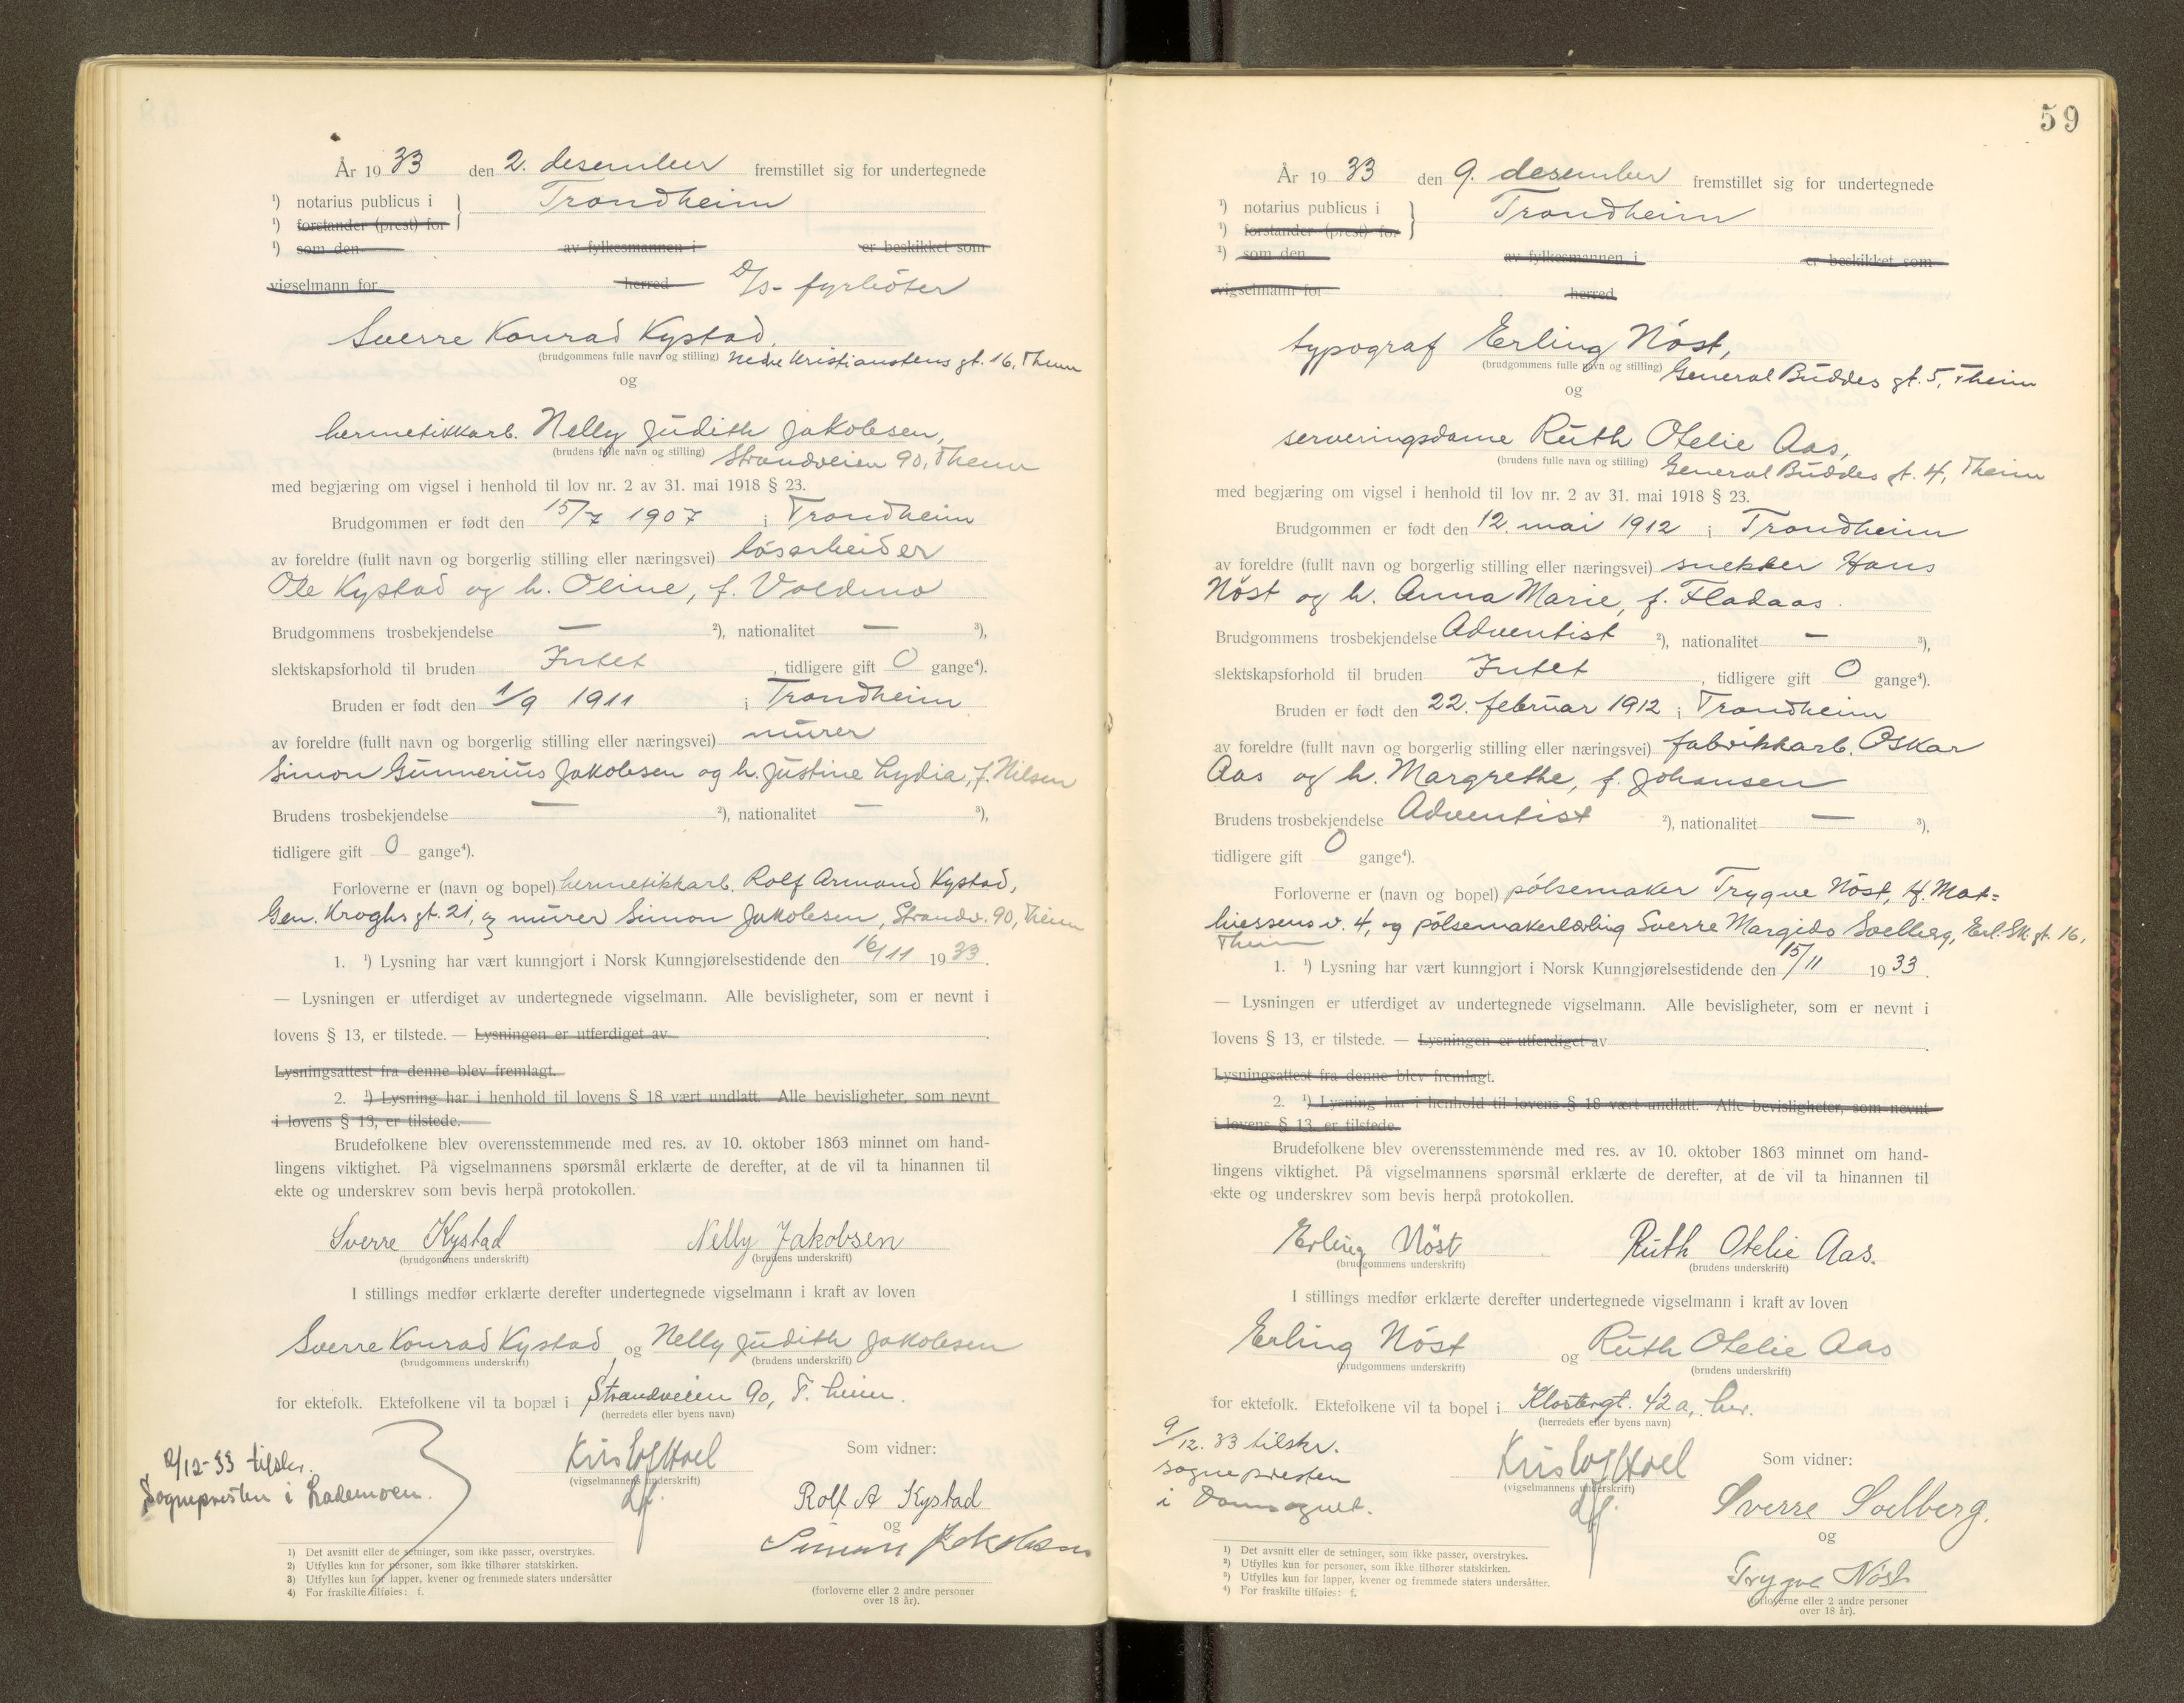 År 1933 den 2. desember fremstillet sig for undertegnede
¹) notarius publicus i } Trondheim
¹) forstander (prest) for
¹) som den av fylkesmannen i er beskikket som
vigselmann for herred D/S- fyrböter
Sverre Konrad Kystad,
(brudgommens fulle navn og stilling) Nedre Kristianstens gt. 16, Them
og
hermetikkarb. Nelly Judith Jakobsen,
(brudens fulle navn og stilling) Strandveien 90, Them
med begjæring om vigsel i henhold til lov nr. 2 av 31. mai 1918 § 23.
Brudgommen er født den 15/7 1907 i Trondheim
av foreldre (fullt navn og borgerlig stilling eller næringsvei) løsarbeider
Ole Kystad og h. Oline, f. Valdmo
Brudgommens trosbekjendelse — ²), nationalitet — ³),
slektskapsforhold til bruden Intet, tidligere gift 0 gange⁴).
Bruden er født den 1/9 1911 i Trondheim
av foreldre (fullt navn og borgerlig stilling eller næringsvei) murer
Simon Gunnerius Jakobsen og h. Justine Lydia, f. Nilsen
Brudens trosbekjendelse — ²), nationalitet — ³),
tidligere gift 0 gange⁴).
Forloverne er (navn og bopel) hermetikkarb. Rolf Armand Kystad,
Gen. Kroghs gt. 21, og murer Simon Jakobsen, Strandv. 90, Them
1. ¹) Lysning har vært kunngjort i Norsk Kunngjørelsestidende den 16/11 1933.
— Lysningen er utferdiget av undertegnede vigselmann. Alle bevisligheter, som er nevnt i
lovens § 13, er tilstede. — Lysningen er utferdiget av
Lysningsattest fra denne blev fremlagt.
2. ¹) Lysning har i henhold til lovens § 18 vært undlatt. Alle bevisligheter, som nevnt
i lovens § 13, er tilstede.
Brudefolkene blev overensstemmende med res. av 10. oktober 1863 minnet om hand-
lingens viktighet. På vigselmannens spørsmål erklærte de derefter, at de vil ta hinannen til
ekte og underskrev som bevis herpå protokollen.
Sverre Kystad Nelly Jakobsen
(brudgommens underskrift) (brudens underskrift)
I stillings medfør erklærte derefter undertegnede vigselmann i kraft av loven
Sverre Konrad Kystad, og Nelly Judith Jakobsen
(brudgommens underskrift) (brudens underskrift)
for ektefolk. Ektefolkene vil ta bopæl i Strandveien 90, T. heim.
(herredets eller byens navn)
2/12-33 tilskr.
Sognepresten i Lademoen.
(vigselmannens underskrift)
Som vidner:
Rolf A Kystad
og
Simon Jakobsen
(forloverne eller 2 andre personer
over 18 år).
1) Det avsnitt eller de setninger, som ikke passer, overstrykes.
2) Utfylles kun for personer, som ikke tilhører statskirken.
3) Utfylles kun for lapper, kvener og fremmede staters undersåtter
4) For fraskilte tilføies: f.
59
År 1933 den 9. desember fremstillet sig for undertegnede
¹) notarius publicus i } Trondheim
¹) forstander (prest) for
¹) som den av fylkesmannen i er beskikket som
vigselmann for herred
typograf Erling Nöst,
(brudgommens fulle navn og stilling) General Buddes gt. 5, Theim
og
serveringsdame Ruth Otelie Aas,
(brudens fulle navn og stilling) General Buddes gt. 4, Theim
med begjæring om vigsel i henhold til lov nr. 2 av 31. mai 1918 § 23.
Brudgommen er født den 12. mai 1912 i Trondheim
av foreldre (fullt navn og borgerlig stilling eller næringsvei) snekker Hans
Nöst og h. Anna Marie, f. Fladaas.
Brudgommens trosbekjendelse Adventist ²), nationalitet — ³),
slektskapsforhold til bruden Intet, tidligere gift 0 gange⁴).
Bruden er født den 22. februar 1912 i Trondheim
av foreldre (fullt navn og borgerlig stilling eller næringsvei) fabrikkarb. Oskar
Aas og h. Margrethe, f. Johansen
Brudens trosbekjendelse Adventist ²), nationalitet — ³),
tidligere gift 0 gange⁴).
Forloverne er (navn og bopel) pölsemaker Trygve Nöst, H. Mat=
hiessens v. 4, og pölsemakerlærling Sverre Margido Soelberg, Erl. Sk. gt. 16,
Theim
1. ¹) Lysning har vært kunngjort i Norsk Kunngjørelsestidende den 15/11 1933.
— Lysningen er utferdiget av undertegnede vigselmann. Alle bevisligheter, som er nevnt i
lovens § 13, er tilstede. — Lysningen er utferdiget av
Lysningsattest fra denne blev fremlagt.
2. ¹) Lysning har i henhold til lovens § 18 vært undlatt. Alle bevisligheter, som nevnt
i lovens § 13, er tilstede.
Brudefolkene blev overensstemmende med res. av 10. oktober 1863 minnet om hand-
lingens viktighet. På vigselmannens spørsmål erklærte de derefter, at de vil ta hinannen til
ekte og underskrev som bevis herpå protokollen.
Erling Nöst Ruth Otelie Aas.
(brudgommens underskrift) (brudens underskrift)
I stillings medfør erklærte derefter undertegnede vigselmann i kraft av loven
Erling Nöst og Ruth Otelie Aas
(brudgommens underskrift) (brudens underskrift)
for ektefolk. Ektefolkene vil ta bopel i Klostergt. 42a, her.
(herredets eller byens navn)
9/12. 33 tilskr.
sognepresten
i Domsognet.
(vigselmannens underskrift)
Som vidner:
Sverre Soelberg.
og
Trygve Nöst
(forloverne eller 2 andre personer
over 18 år).
1) Det avsnitt eller de setninger, som ikke passer, overstrykes.
2) Utfylles kun for personer, som ikke tilhører statskirken.
3) Utfylles kun for lapper, kvener og fremmede staters undersåtter.
4) For fraskilte tilføies: f.